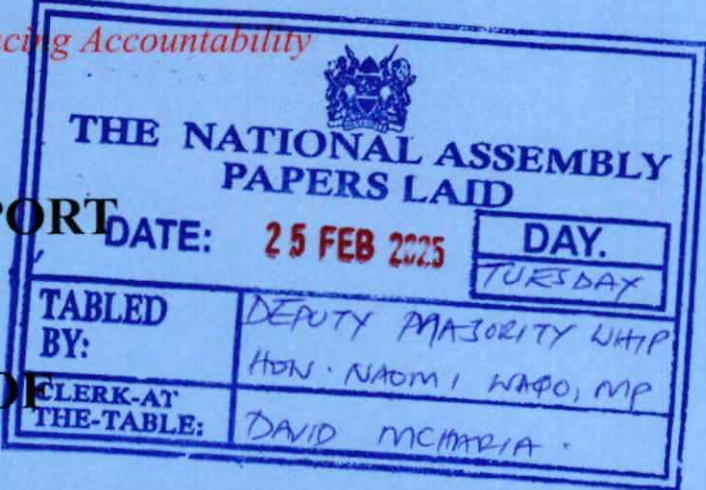 cing Accountability
THE NATIONAL ASSEMBLY
PAPERS LAID
PORT
DATE: 25 FEB 2025 DAY.
TUESDAY
TABLED BY: DEPUTY MAJORITY WHIP
HON. NAOMI WAQO, MP
OF
CLERK-AT THE-TABLE: DAVID MCHARIA.